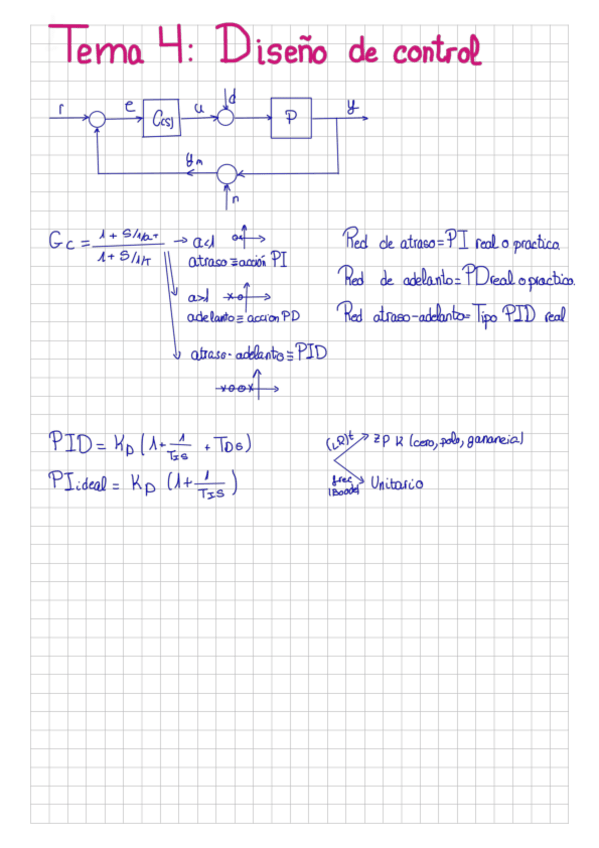 Tema 4: Diseño de control
r e C(s) u d P y
yn
n
Gc = 1 + S/1/aT / 1 + S/1/T → a<1
atraso ≡ acción PI
a>1
adelanto ≡ accion PD
atraso-adelanto ≡ PID
Red de atraso = PI real o practica
Red de adelanto = PD real o practico.
Red atraso-adelanto = Tipo PID real
PID = Kp (1 + 1/TIS + TDS)
PI ideal = Kp (1 + 1/TIS)
(LR) t ZPK (cero, polo, ganancia)
frec (Boode) Unitario